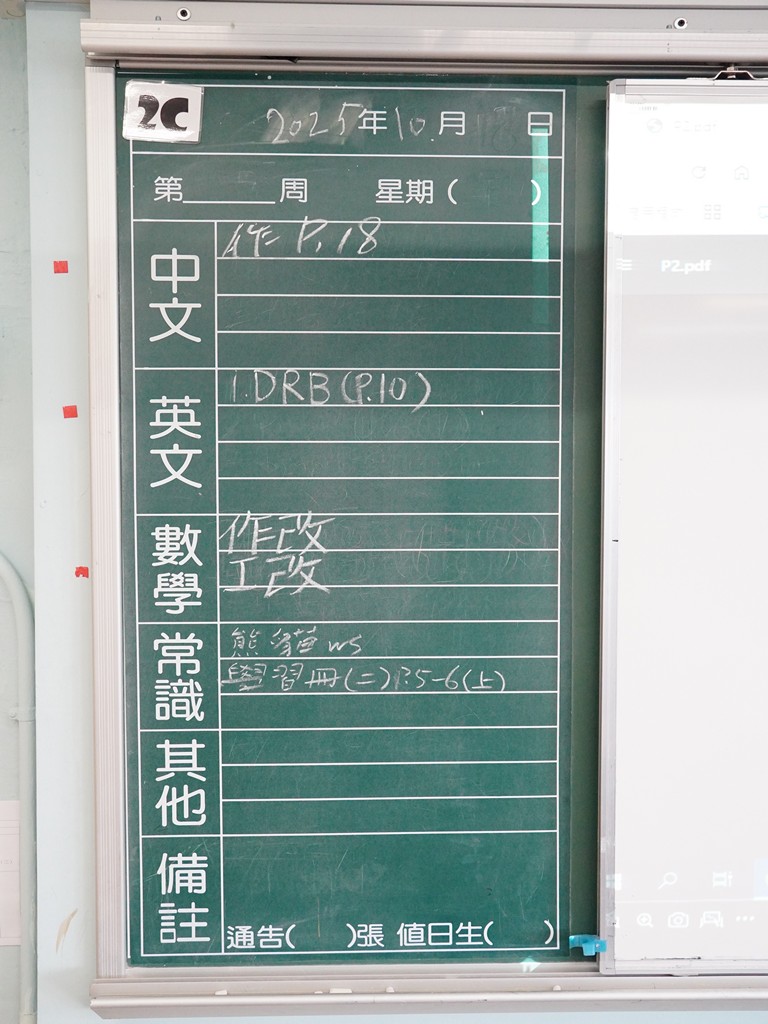 2C
2025年10月 日
第______周 星期( )
中文
作 P.18
英文
1.DRB(P.10)
數學
作改
工改
常識
熊貓ws
學習冊(二)P.5-6(上)
其他
備註
通告( )張 值日生( )
P2.pdf